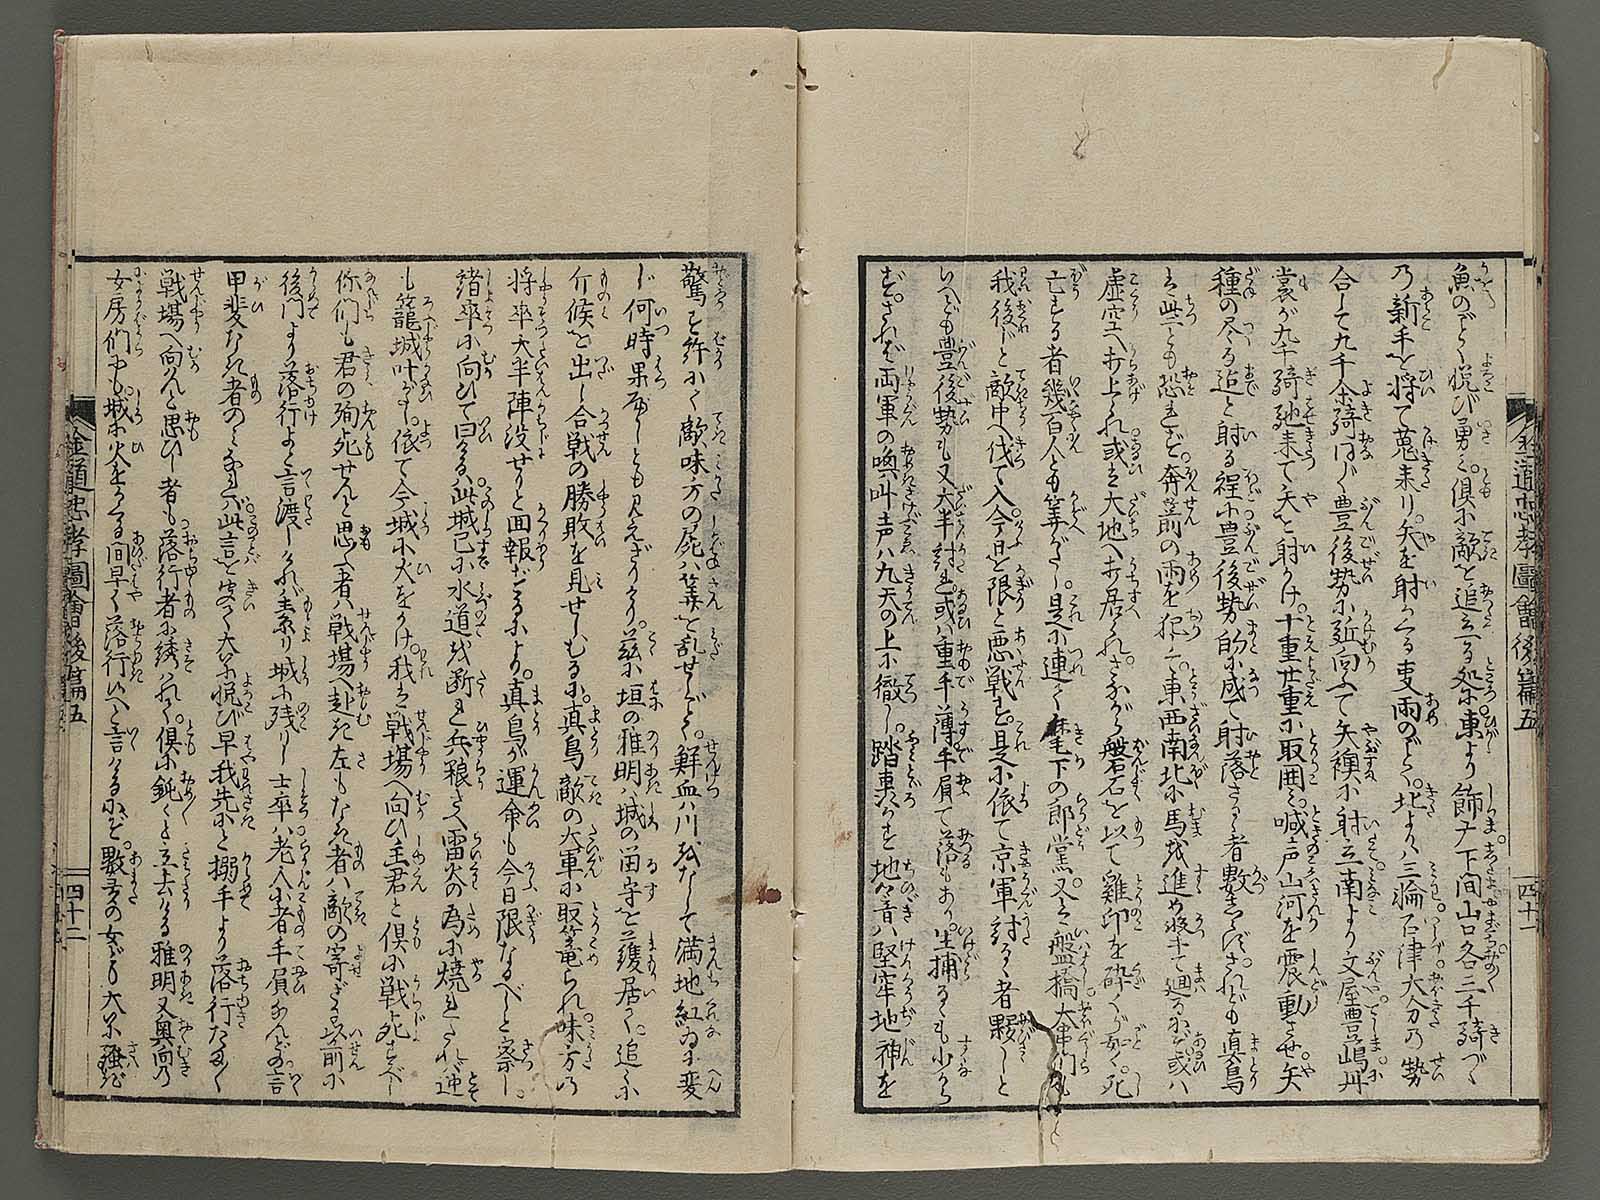 魚のごとく悦び勇ミ。倶に敵を追立る処に。東より飾尹下間山口各三千騎づゝ
の新手を将て蒐来り。矢を射かくる叓雨のごとく。北よりハ三輪石津大分の勢
合して九千余騎ほど豊後勢に近向ふて矢襖に射立。南より文屋豊嶋丹
裳が九千騎馳来て矢を射かけ。十重廿重に取囲ミ。喊声山河を震動させ。矢
種の尽る迄と射る程に豊後勢的に成て射落さるゝ者数しれず。されども真鳥
は些とも恐れず。奔箭の雨を犯して。東西南北に馬を進め撃て廻るにぞ或ハ
虚空へ打上られ或は大地へ打居られ。さながら磐石を以て雞卵を砕くが如く。死
亡する者幾百人とも算がたし。是に連て麾下の郎党。又は盤橋大串們も
我後じと敵中へ伐て入。今日を限と悪戦す。是に依て京軍討るゝ者夥しと
いへども豊後勢も又大半討れ。或ハ重手薄手肩て落るもあり。生捕るゝも少から
ず。されば両軍の喚叫声ハ九天の上に徹し。踏轟かす地響ハ堅牢地神を
金道忠孝圖會後篇五
四十一
驚す許にて敵味方の屍ハ算を乱せるごとく。鮮血ハ川をなして満地紅ゐに変
じ何時果べしとも見えざりけり。茲に垣の雅明ハ城の留守を護居て。追々に
斥候を出し合戦の勝敗を見せしむるに。真鳥敵の大軍に取篭られ。味方の
将卒大半陣没せりと回報ずるにより。真鳥が運命も今日限なるべしと察し。
諸卒に向ひて曰るハ。此城已に水道を断れ兵粮さへ雷火の為に焼れたれバ迚
も籠城叶がたし。依て今城に火をかけ。我は戦場へ向ひ主君と倶に戦死すべし
你們も君の殉死せんと思ふ者ハ戦場へ赴き。左もなき者ハ敵の寄ざる以前に
後門より落行よと言渡しければ。素り城に残りし士卒ハ老人小者手負なんどの言
甲斐なき者のミなれバ。此言を聞て大に悦び早我先にと搦手より落行たるべく
戦場へ向んと思ひし者も落行者に誘れて。倶に鈍くも立去ける。雅明又奥向の
女房們にも。城に火をかくる間早く落行べしと言けるにぞ。数多の女ども大に騒ぎ
金道忠孝圖會後篇五
四十二